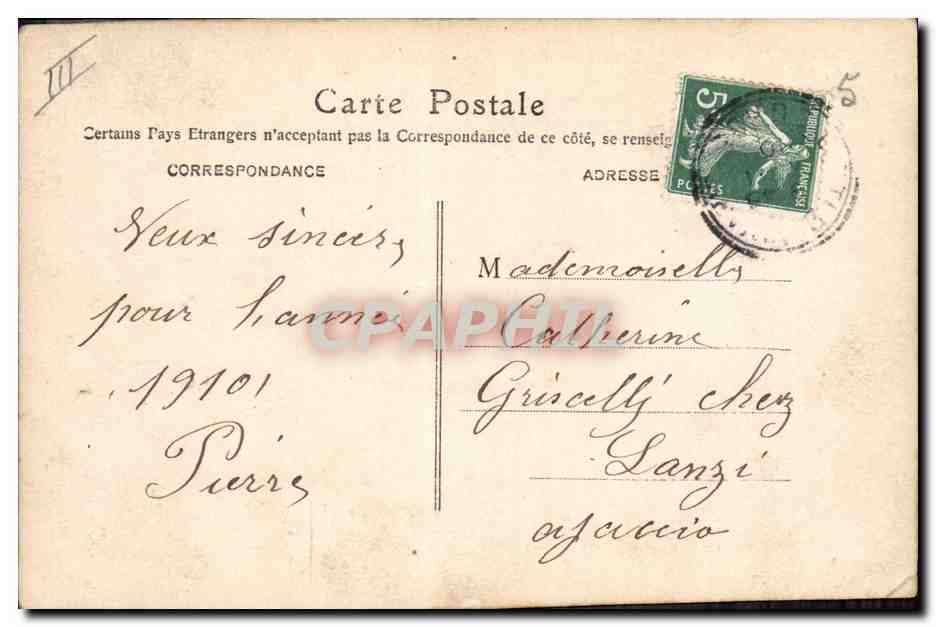 III
5
Carte Postale
Certains Pays Etrangers n'acceptant pas la Correspondance de ce côté, se renseig
CORRESPONDANCE
ADRESSE
5
POSTES
REPUBLIQUE FRANÇAISE
Veux sincers
pour l'année
1910
Pierre
Mademoiselle
Catherine
Griscelli chez
Lanzi
ajaccio
CPAPHIL